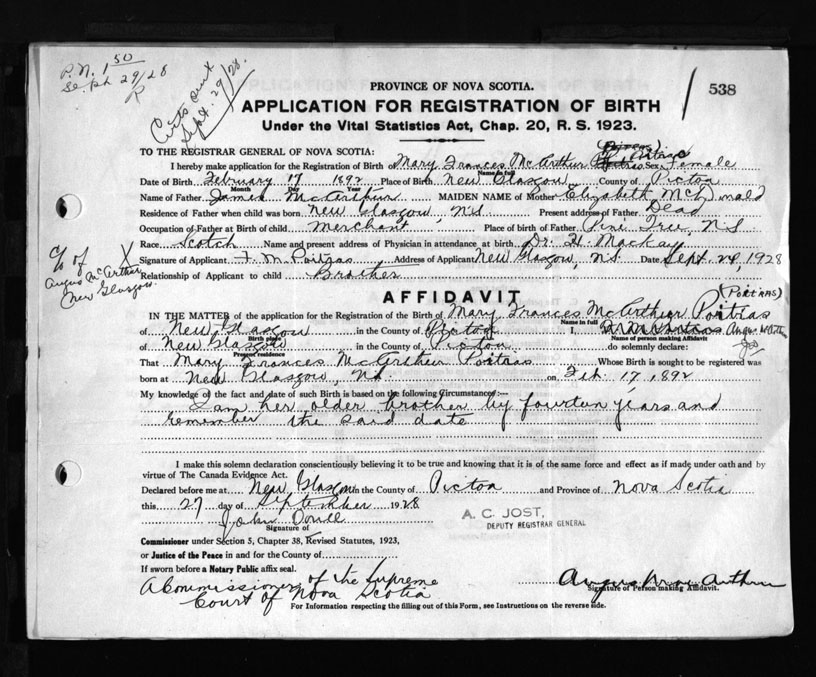 P.N. 1 50
Sept 29/28
P
Certs sent
Sept. 29/28.
538
PROVINCE OF NOVA SCOTIA.
APPLICATION FOR REGISTRATION OF BIRTH
Under the Vital Statistics Act, Chap. 20, R. S. 1923.
TO THE REGISTRAR GENERAL OF NOVA SCOTIA:
I hereby make application for the Registration of Birth of Mary Frances McArthur Poitras Sex Female
Name in full
Date of Birth February 17 1892 Place of Birth New Glasgow County of Pictou
Month Day Year
Name of Father James McArthur MAIDEN NAME of Mother Elizabeth McDonald
Residence of Father when child was born New Glasgow, N.S Present address of Father Dead
Occupation of Father at Birth of child Merchant Place of birth of Father Pine Tree, N.S
Race Scotch Name and present address of Physician in attendance at birth Dr. H. MacKay
Signature of Applicant F. M. Poitras Address of Applicant New Glasgow, N.S. Date Sept 24, 1928
Relationship of Applicant to child Brother
c/o of
Angus McArthur
New Glasgow.
X
AFFIDAVIT
(POITRAS)
IN THE MATTER of the application of the Registration of the Birth of Mary Frances McArthur Poitras
Name in full
of New Glasgow in the County of Pictou I, Angus
Birth place
Name of person making Affidavit
of New Glasgow in the County of Pictou do solemnly declare:
Present residence
That Mary Frances McArthur Poitras Whose Birth is sought to be registered was
born at New Glasgow, N.S. on Feb. 17, 1892
My knowledge of the fact and date of such Birth is based on the following Circumstances:—
I am her older brother by fourten years and
remember the said date
I make this solemn declaration conscientiously believing it to be true and knowing that it is of the same force and effect as if made under oath and by
virtue of The Canada Evidence Act.
Declared before me at New Glasgow in the County of Pictou and Province of Nova Scotia
this 27 day of September 1928
A. C. JOST,
DEPUTY REGISTRAR GENERAL
John Doull
Signature of
Commissioner under Section 5, Chapter 38, Revised Statutes, 1923,
or Justice of the Peace in and for the County of
If sworn before a Notary Public affix seal.
A Commissioner of the Supreme
Court of Nova Scotia
Angus Mac Arthur
Signature of Person making Affidavit.
For Information respecting the filling out of this Form, see Instructions on the reverse side.